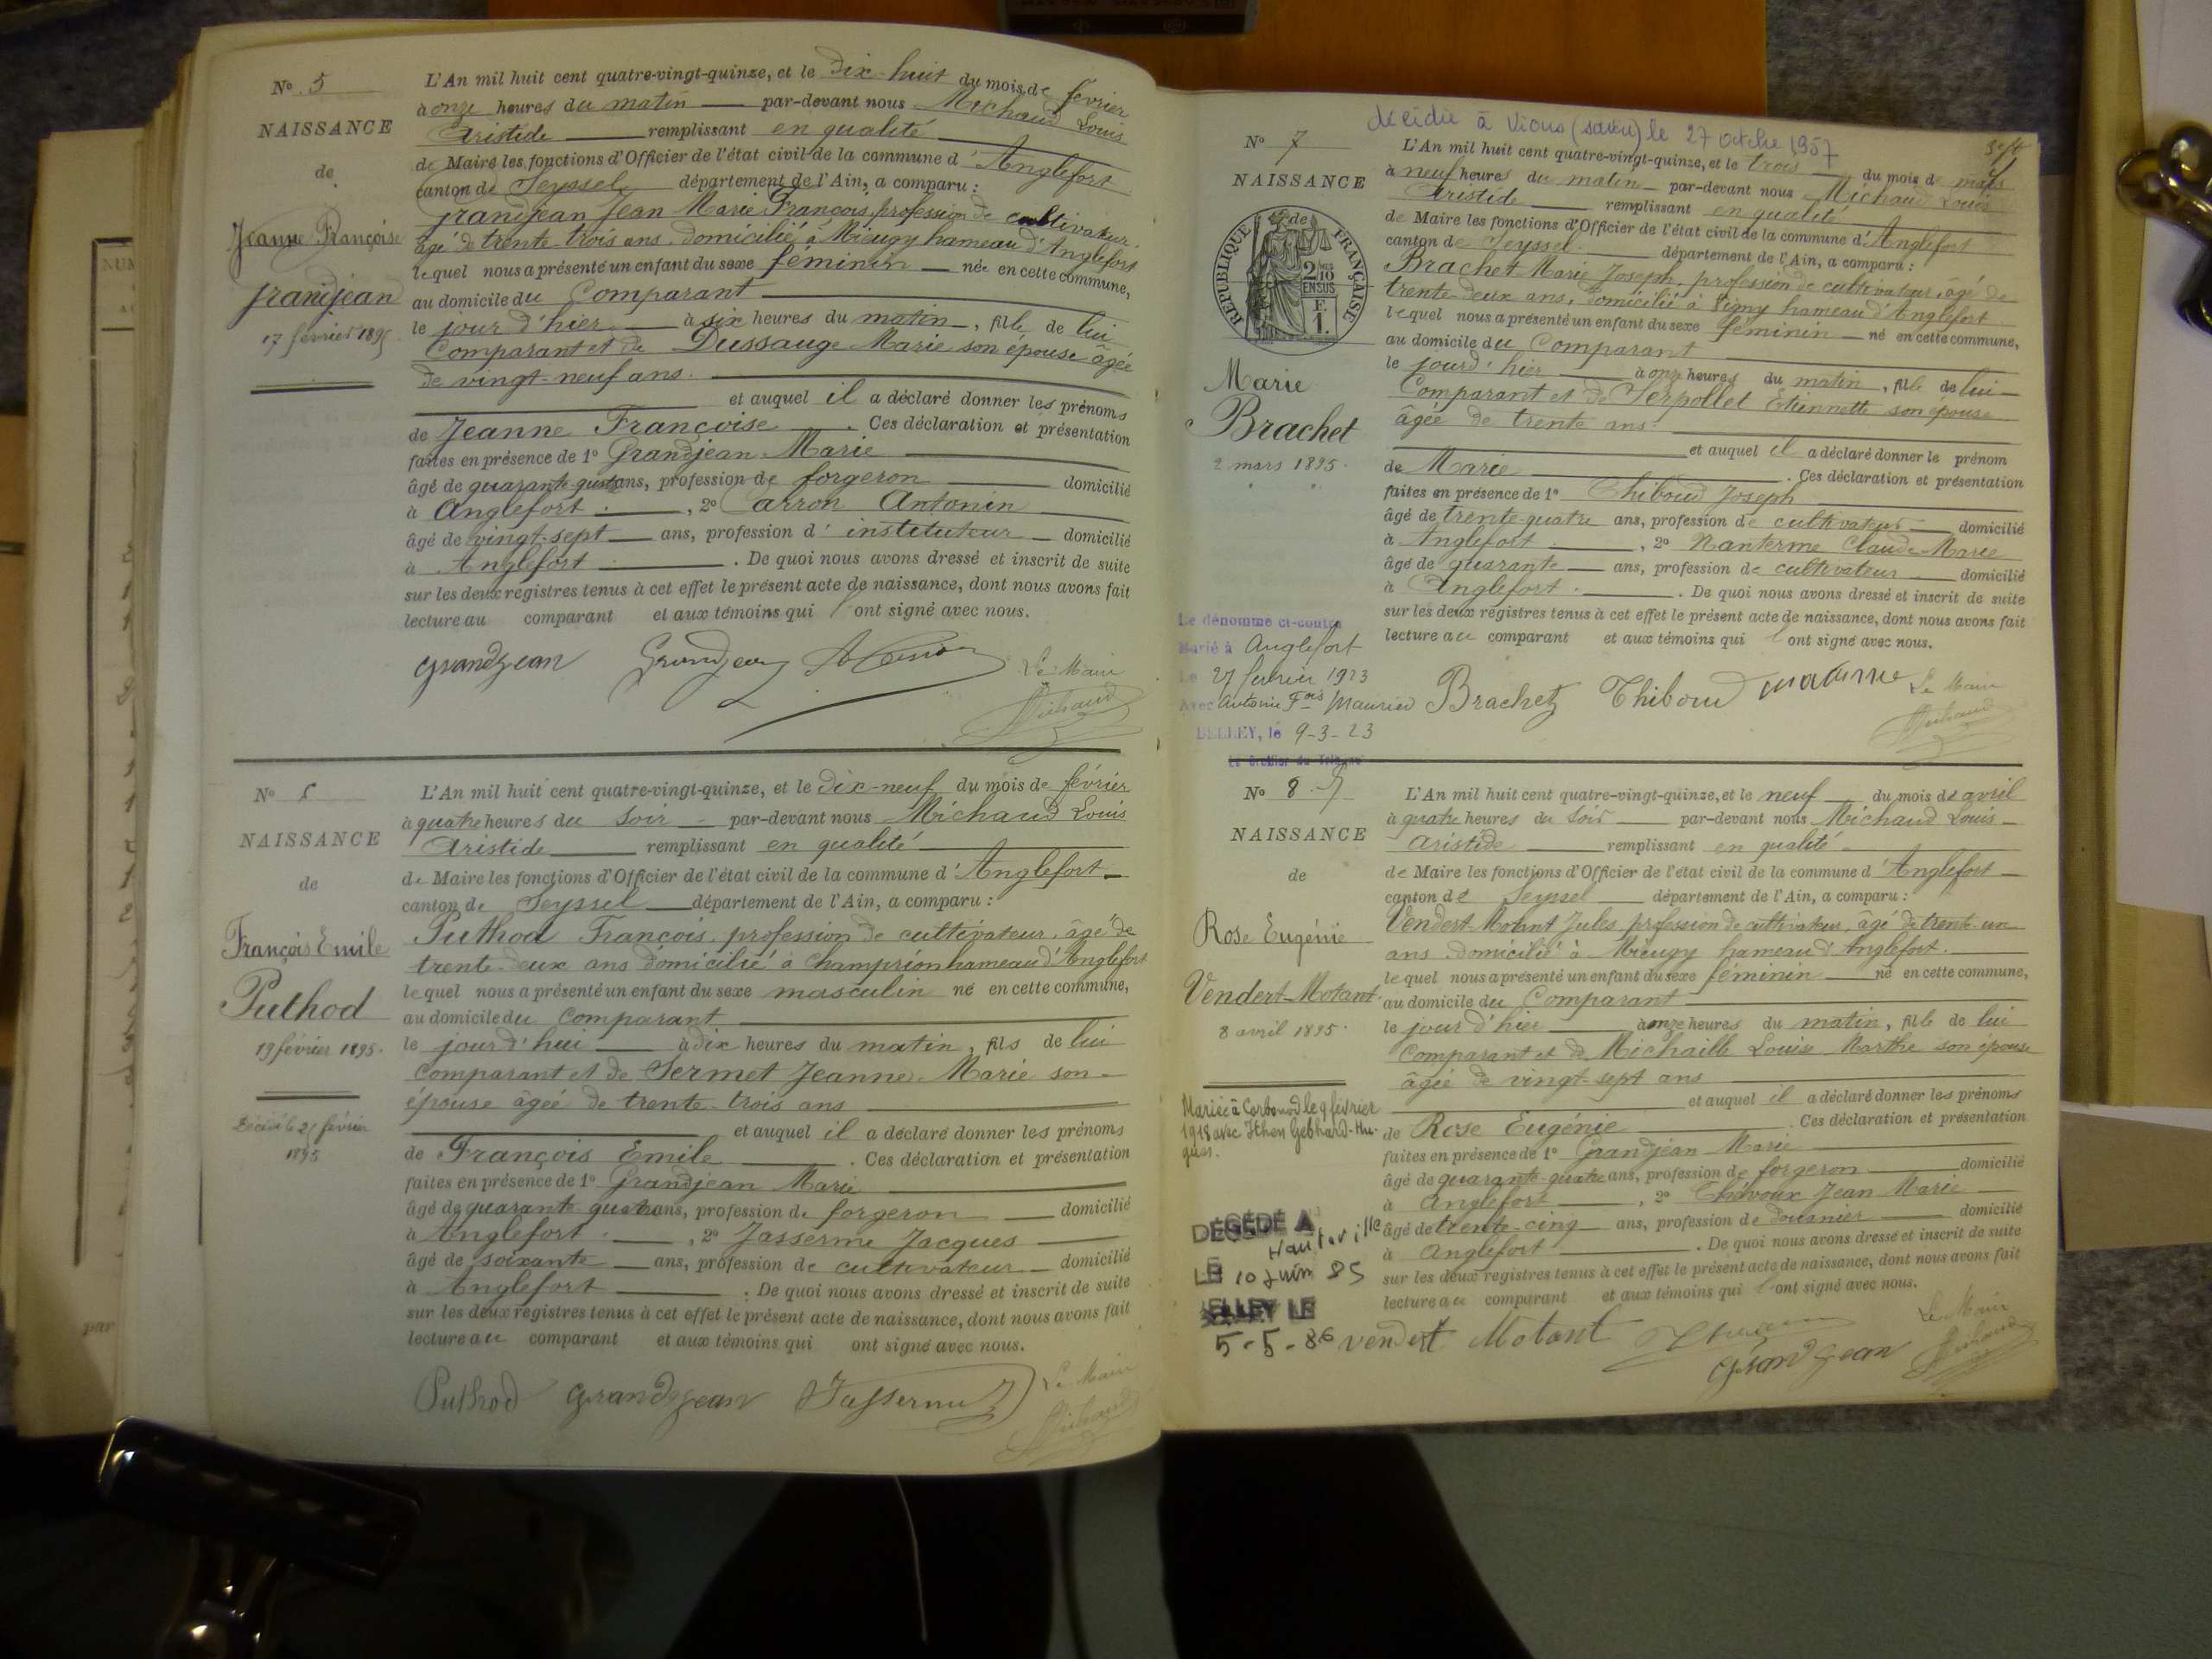 N° 5
NAISSANCE
de
Jeanne Françoise
grandjean
17 février 1895
L'An mil huit cent quatre-vingt-quinze, et le dix-huit du mois de février
à onze heures du matin par-devant nous Michaud Louis
Aristide remplissant en qualité
de Maire les fonctions d'Officier de l'état civil de la commune d'Anglefort
canton de Seyssel département de l'Ain, a comparu :
grandjean Jean Marie François, profession de cultivateur,
âgé de trente-trois ans, domicilié à Mieugy hameau d'Anglefort
lequel nous a présenté un enfant du sexe féminin née en cette commune,
au domicile du Comparant
le jour d'hier à six heures du matin, fille de lui
Comparant et de Dussauge Marie son épouse âgée
de vingt-neuf ans.
et auquel il a déclaré donner les prénoms
de Jeanne Françoise. Ces déclaration et présentation
faites en présence de 1° Grandjean Marie
âgé de ans, profession de forgeron domicilié
à Anglefort, 2° Carron Antonin
âgé de vingt-sept ans, profession d'instituteur domicilié
à Anglefort. De quoi nous avons dressé et inscrit de suite
sur les deux registres tenus à cet effet le présent acte de naissance, dont nous avons fait
lecture au comparant et aux témoins qui l'ont signé avec nous.
grandjean Grandjean Le Maire
Michaud
N°
NAISSANCE
de
François Emile
Puthod
19 février 1895.
Décédé le 21 février
1895
L'An mil huit cent quatre-vingt-quinze, et le dix-neuf du mois de février
à quatre heures du soir par-devant nous Michaud Louis
Aristide remplissant en qualité
de Maire les fonctions d'Officier de l'état civil de la commune d'Anglefort
canton de Seyssel département de l'Ain, a comparu :
Puthod François, profession de cultivateur, âgé de
trente-deux ans domicilié à Champrion hameau d'Anglefort
lequel nous a présenté un enfant du sexe masculin né en cette commune,
au domicile du comparant
le jourd'hui à dix heures du matin, fils de lui
comparant et de Sermet Jeanne Marie son
épouse âgée de trente-trois ans
et auquel il a déclaré donner les prénoms
de François Emile. Ces déclaration et présentation
faites en présence de 1° Grandjean Marie
âgé de quarante quatre ans, profession de forgeron domicilié
à Anglefort, 2° Jasserme Jacques
âgé de soixante ans, profession de cultivateur domicilié
à Anglefort. De quoi nous avons dressé et inscrit de suite
sur les deux registres tenus à cet effet le présent acte de naissance, dont nous avons fait
lecture au comparant et aux témoins qui ont signé avec nous.
Puthod grandjean Jasserme Le Maire
Michaud
décédée à Vions (savoie) le 27 octobre 1957
N° 7
NAISSANCE
de
RÉPUBLIQUE FRANÇAISE
2 10
EN SUS
F.
1.
Marie
Brachet
2 mars 1895.
Le dénommé ci-contre
Marié à Anglefort
Le 27 février 1923
Avec Antoine Fois Maurier
BELLEY, le 9-3-23
Le Greffier du Tribunal
L'An mil huit cent quatre-vingt-quinze, et le trois du mois de mars
à neuf heures du matin par-devant nous Michaud Louis
Aristide remplissant en qualité
de Maire les fonctions d'Officier de l'état civil de la commune d'Anglefort
canton de Seyssel département de l'Ain, a comparu :
Brachet Marie Joseph, profession de cultivateur, âgé de
trente-deux ans, domicilié à hameau d'Anglefort
lequel nous a présenté un enfant du sexe féminin né en cette commune,
au domicile du Comparant
le jourd'hier à onze heures du matin, fille de lui
Comparant et de Serpollet Etiennette son épouse
âgée de trente ans.
et auquel il a déclaré donner le prénom
de Marie. Ces déclaration et présentation
faites en présence de 1° Thiboud Joseph
âgé de trente-quatre ans, profession de cultivateur domicilié
à Anglefort, 2° Nanterme Claude Marie
âgé de quarante ans, profession de cultivateur domicilié
à Anglefort. De quoi nous avons dressé et inscrit de suite
sur les deux registres tenus à cet effet le présent acte de naissance, dont nous avons fait
lecture au comparant et aux témoins qui l'ont signé avec nous.
Brachet Thiboud Le Maire
Michaud
N° 8
NAISSANCE
de
Rose Eugénie
Vendert-Motant
8 avril 1895.
Mariée à Corbonod le 9 février
1918 avec Ithen Gebhard-Hu-
gues.
DÉCÉDÉ A
Hauteville
LE 10 Juin 85
BELLEY LE
5-5-86
L'An mil huit cent quatre-vingt-quinze, et le neuf du mois de avril
à quatre heures du soir par-devant nous Michaud Louis
Aristide remplissant en qualité
de Maire les fonctions d'Officier de l'état civil de la commune d'Anglefort
canton de Seyssel département de l'Ain, a comparu :
Vendert-Motant Jules profession de cultivateur, âgé de trente-un
ans domicilié à Mieugy hameau d'Anglefort.
lequel nous a présenté un enfant du sexe féminin né en cette commune,
au domicile du Comparant
le jour d'hier à onze heures du matin, fille de lui
comparant et de Michaille Louise Marthe son épouse
âgée de vingt-sept ans
et auquel il a déclaré donner les prénoms
de Rose Eugénie. Ces déclaration et présentation
faites en présence de 1° Grandjean Marie
âgé de quarante-quatre ans, profession de forgeron domicilié
à Anglefort, 2° Thévoux Jean Marie
âgé de trente-cinq ans, profession de domicilié
à Anglefort. De quoi nous avons dressé et inscrit de suite
sur les deux registres tenus à cet effet le présent acte de naissance, dont nous avons fait
lecture au comparant et aux témoins qui l'ont signé avec nous.
vendert Motant grandjean Le Maire
Michaud
par